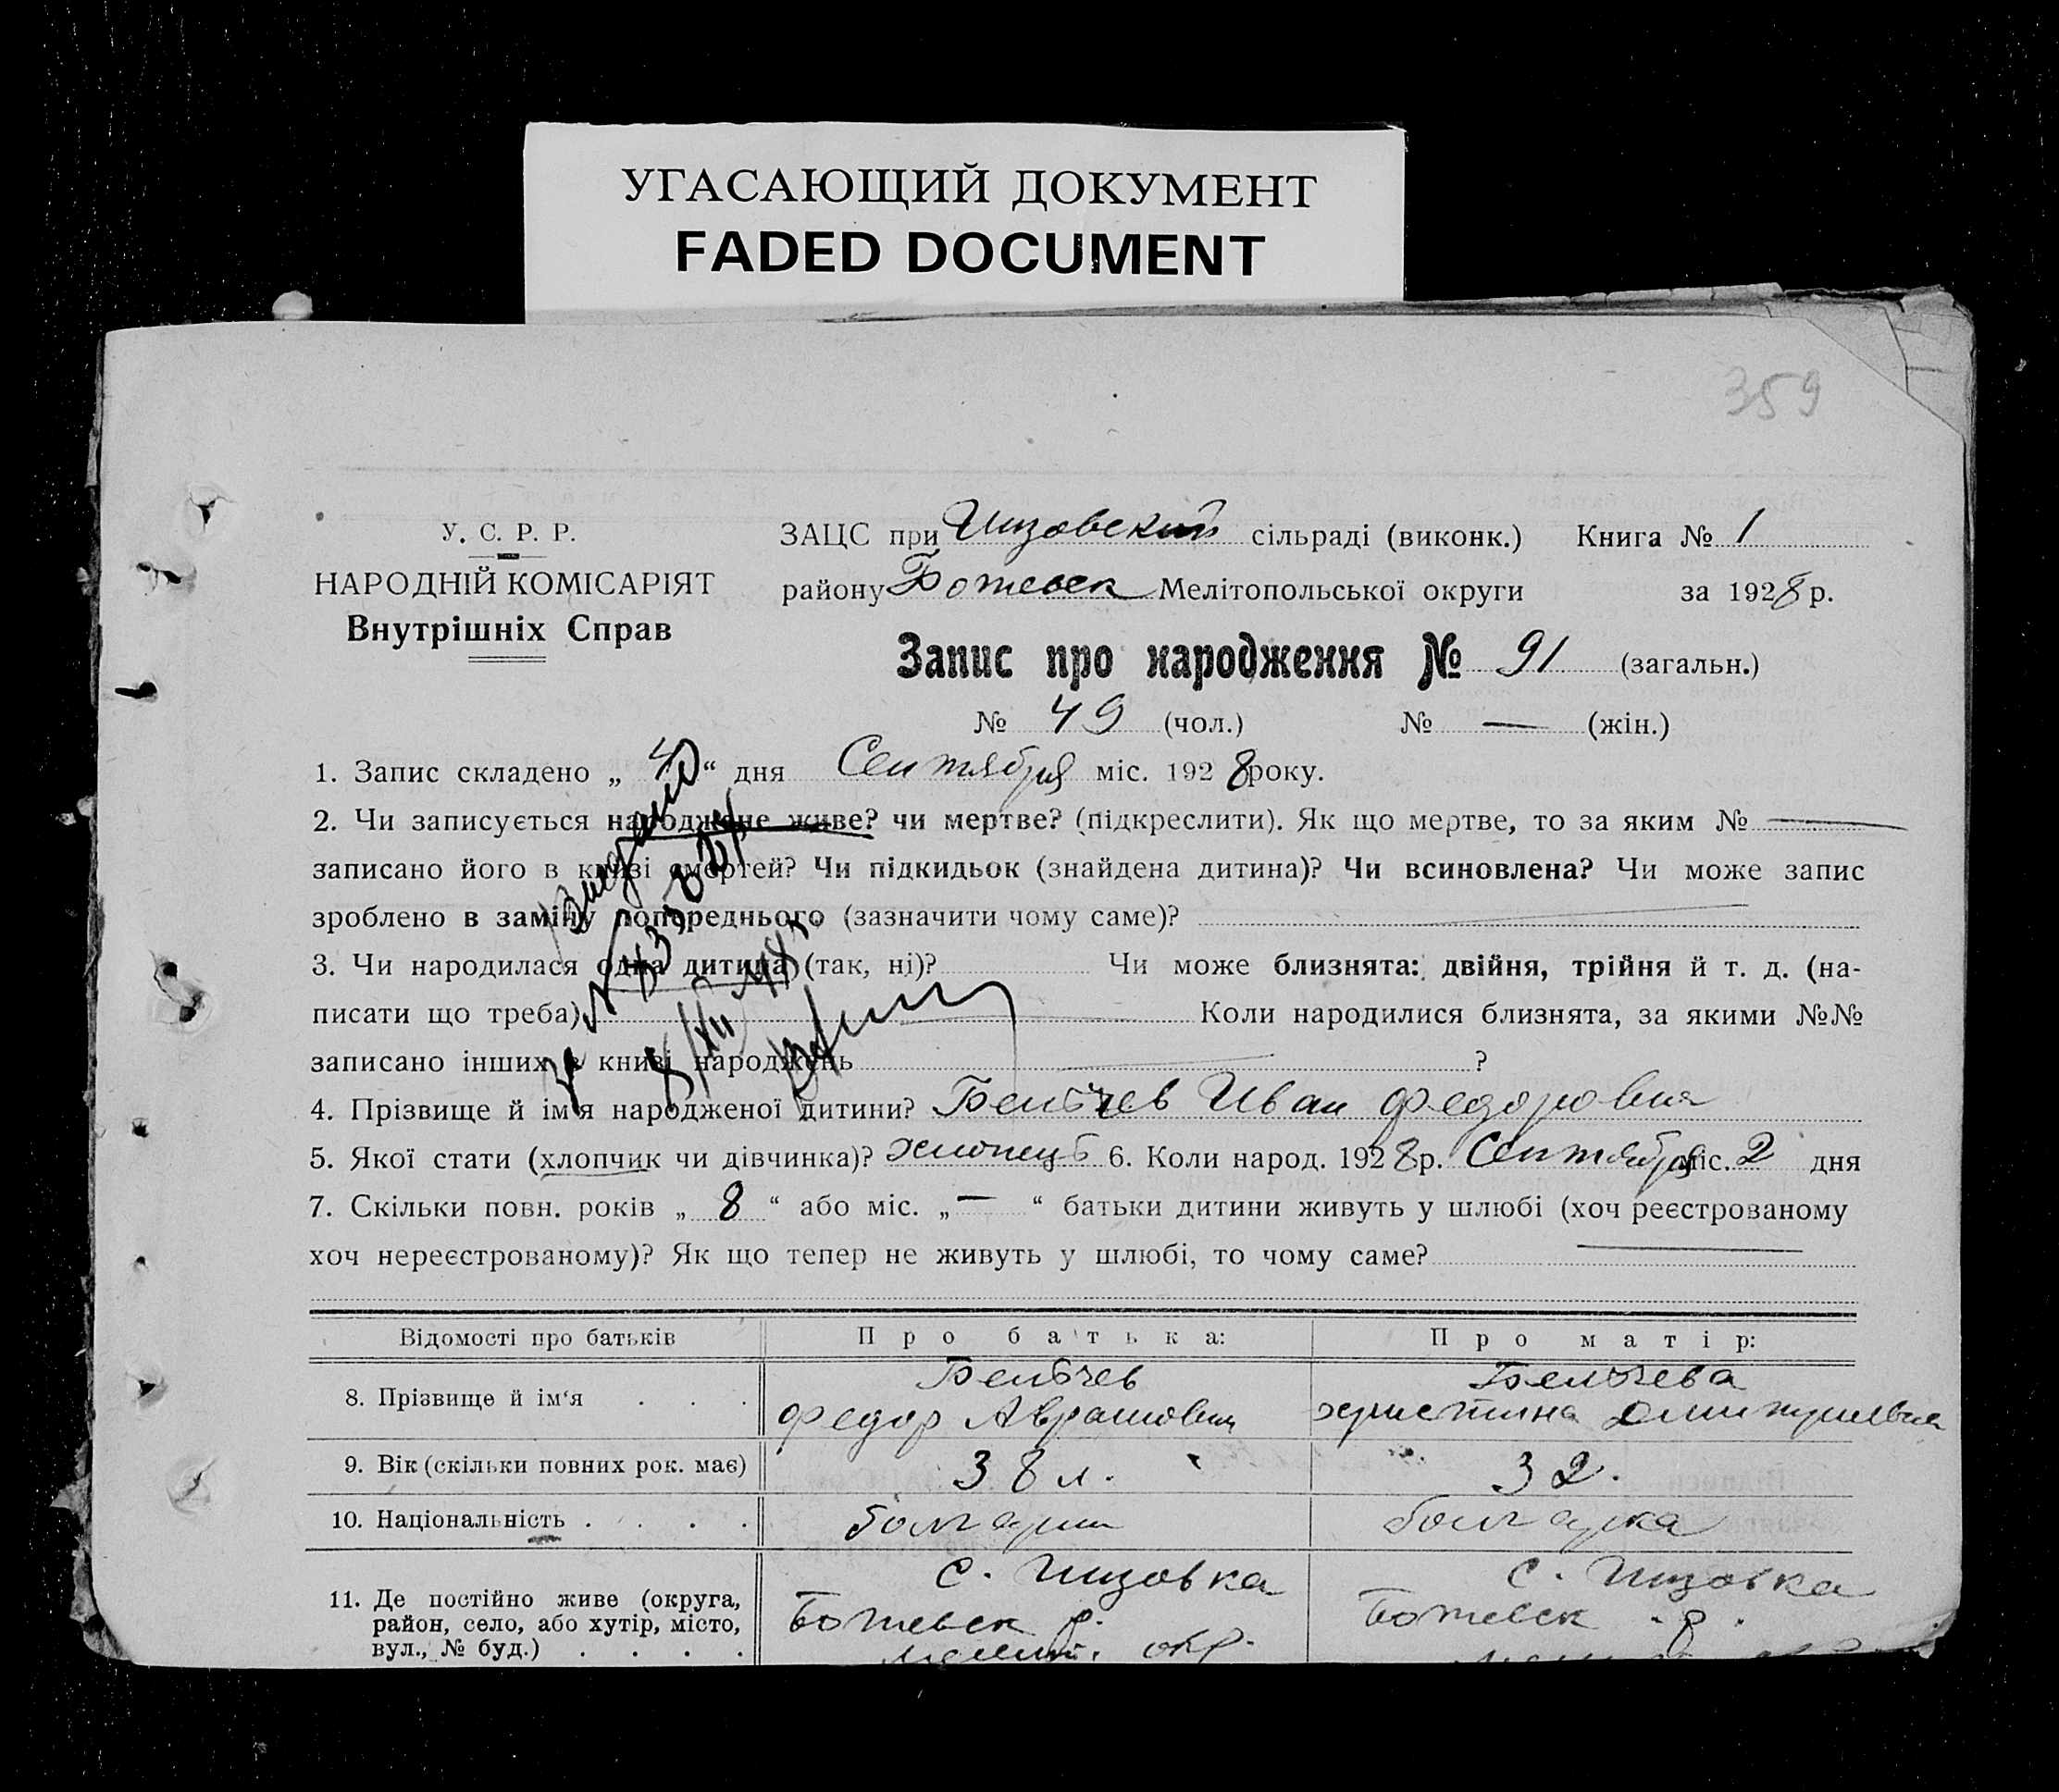 УГАСАЮЩИЙ ДОКУМЕНТ
FADED DOCUMENT
359
У. С. Р. Р.
НАРОДНІЙ КОМІСАРІЯТ
Внутрішніх Справ
ЗАЦС при сільраді (виконк.) Книга № 1
району Ботевск Мелітопольської округи за 1928 р.
Запис про народження № 91 (загальн.)
№ 49 (чол.) № — (жін.)
1. Запис складено „ “ дня Сентября міс. 1928 року.
2. Чи записується народжене живе? чи мертве? (підкреслити). Як що мертве, то за яким № —
записано його в книзі смертей? Чи підкидьок (знайдена дитина)? Чи всиновлена? Чи може запис
зроблено в заміну попореднього (зазначити чому саме)?
3. Чи народилася одна дитина (так, ні)? Чи може близнята: двійня, трійня й т. д. (на-
писати що треба) Коли народилися близнята, за якими №№
записано інших в книзі народжень ?
4. Прізвище й ім'я народженої дитини? Бельчев Иван Федорович
5. Якої стати (хлопчик чи дівчинка)? хлопець 6. Коли народ. 1928 р. Сентября міс. 2 дня
7. Скільки повн. років „ 8 “ або міс. „ — “ батьки дитини живуть у шлюбі (хоч реєстрованому
хоч нереєстрованому)? Як що тепер не живуть у шлюбі, то чому саме? —
Відомості про батьків Про батька: Про матір:
8. Прізвище й ім‘я . . . Бельчев Федор Аврамович Бельчева Христина Дмитриевна
9. Вік (скільки повних рок. має) 38 л. 32.
10. Національність . . . . болгарин болгарка
11. Де постійно живе (округа, район, село, або хутір, місто, вул., № буд.) . . . .
с. с.
Ботевск р. Ботевск р.
Мелит. окр.